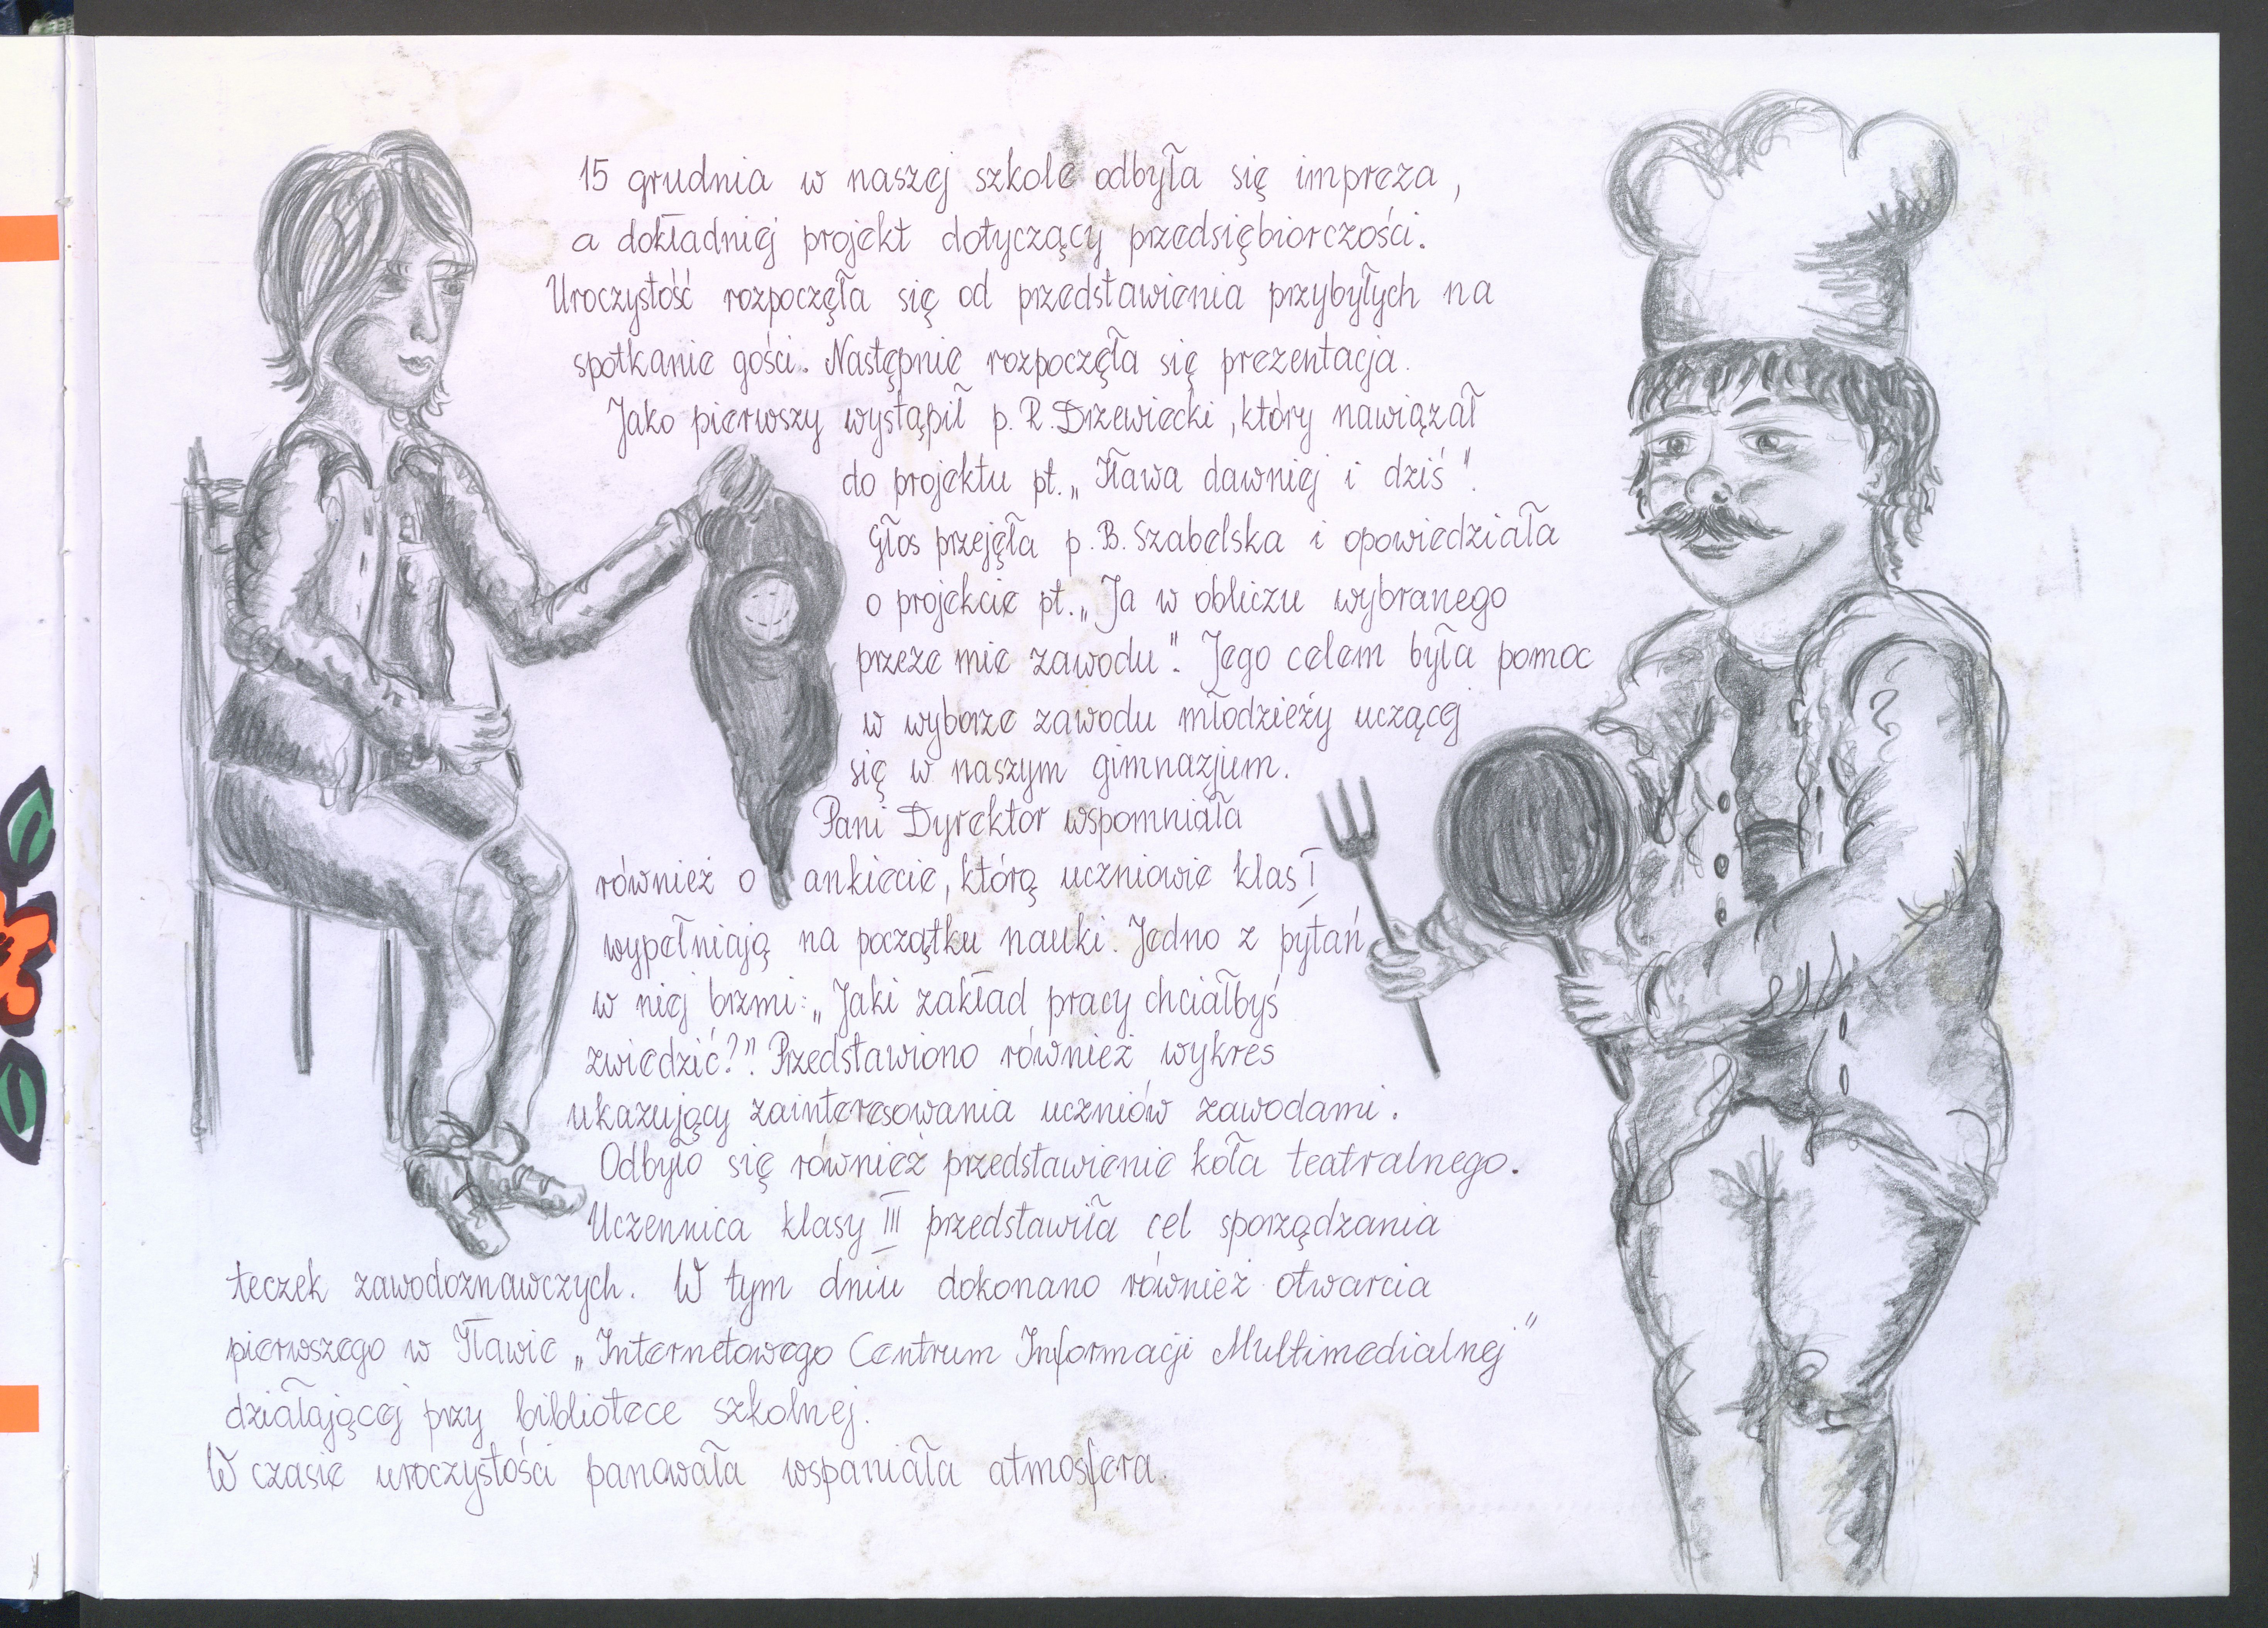 15 grudnia w naszej szkole odbyła się impreza,
a dokładniej projekt dotyczący przedsiębiorczości.
Uroczystość rozpoczęła się od przedstawienia przybyłych na
spotkanie gości. Następnie rozpoczęła się prezentacja.
Jako pierwszy wystąpił p. R. Drzewiecki, który nawiązał
do projektu pt. „Iława dawniej i dziś".
Głos przejęła p. B. Szabelska i opowiedziała
o projekcie pt. „Ja w obliczu wybranego
przeze mie zawodu". Jego celem była pomoc
w wyborze zawodu młodzieży uczącej
się w naszym gimnazjum.
Pani Dyrektor wspomniała
również o ankiecie, którą uczniowie klas I
wypełniają na początku nauki. Jedno z pytań
w niej brzmi: „Jaki zakład pracy chciałbyś
zwiedzić?". Przedstawiono również wykres
ukazujący zainteresowania uczniów zawodami.
Odbyło się również przedstawienie koła teatralnego.
Uczennica klasy III przedstawiła cel sporządzania
teczek zawodoznawczych. W tym dniu dokonano również otwarcia
pierwszego w Iławie „Internetowego Centrum Informacji Multimedialnej"
działającej przy bibliotece szkolnej.
W czasie uroczystości panowała wspaniała atmosfera.